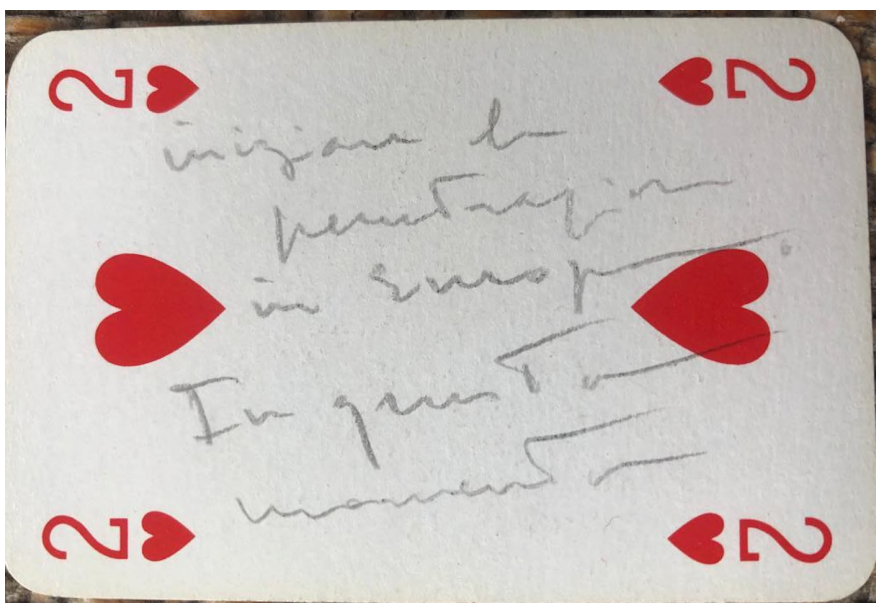 2 2
iniziare la
penetrazione
in Europa.
In questo
momento
2 2